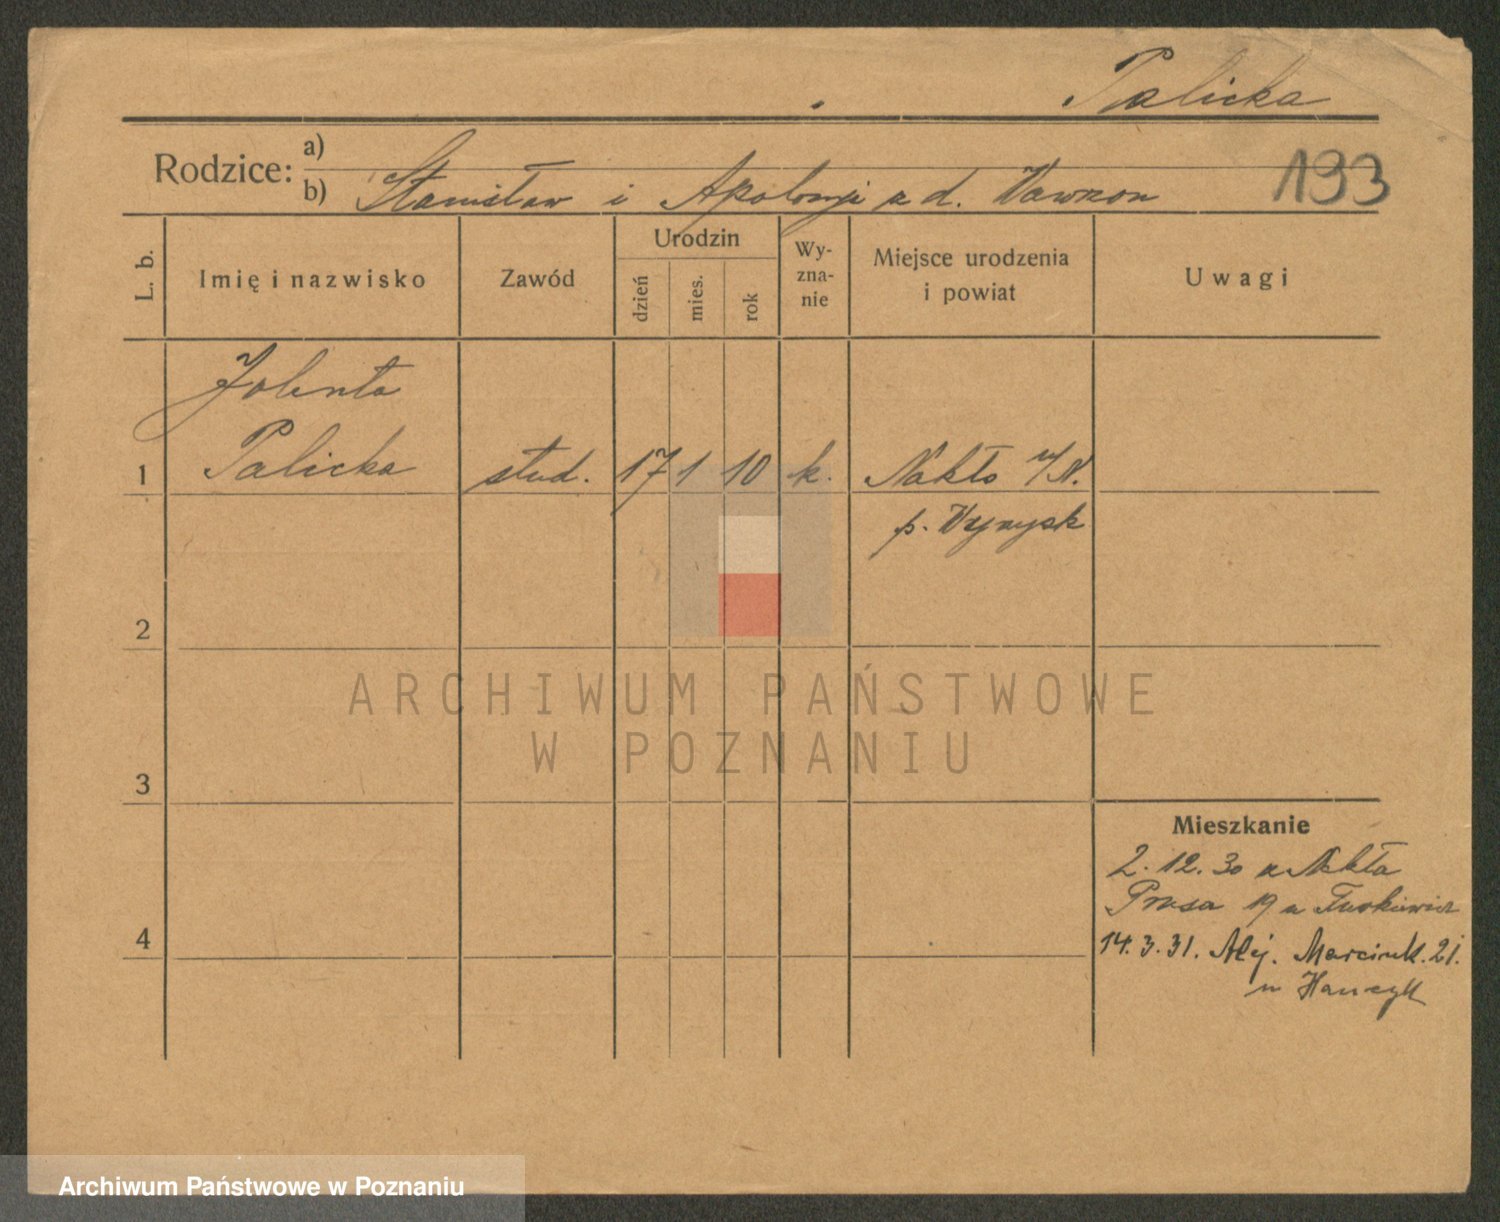 Palicka
Rodzice: a)
b) Stanisław i Apolonji z d. Wawrzon
193
L. b.
Imię i nazwisko
Zawód
Urodzin
dzień
mies.
rok
Wy-
zna-
nie
Miejsce urodzenia
i powiat
Uwagi
Jolenta
1 Palicka stud. 17 1 10 k. Nakło n/N.
p. Wyrzysk
2
3
4
ARCHIWUM PAŃSTWOWE
W POZNANIU
Mieszkanie
2.12.30 z Nakła
Prusa 19 u
14.3.31. Alej. Marcink. 21.
u
Archiwum Państwowe w Poznaniu